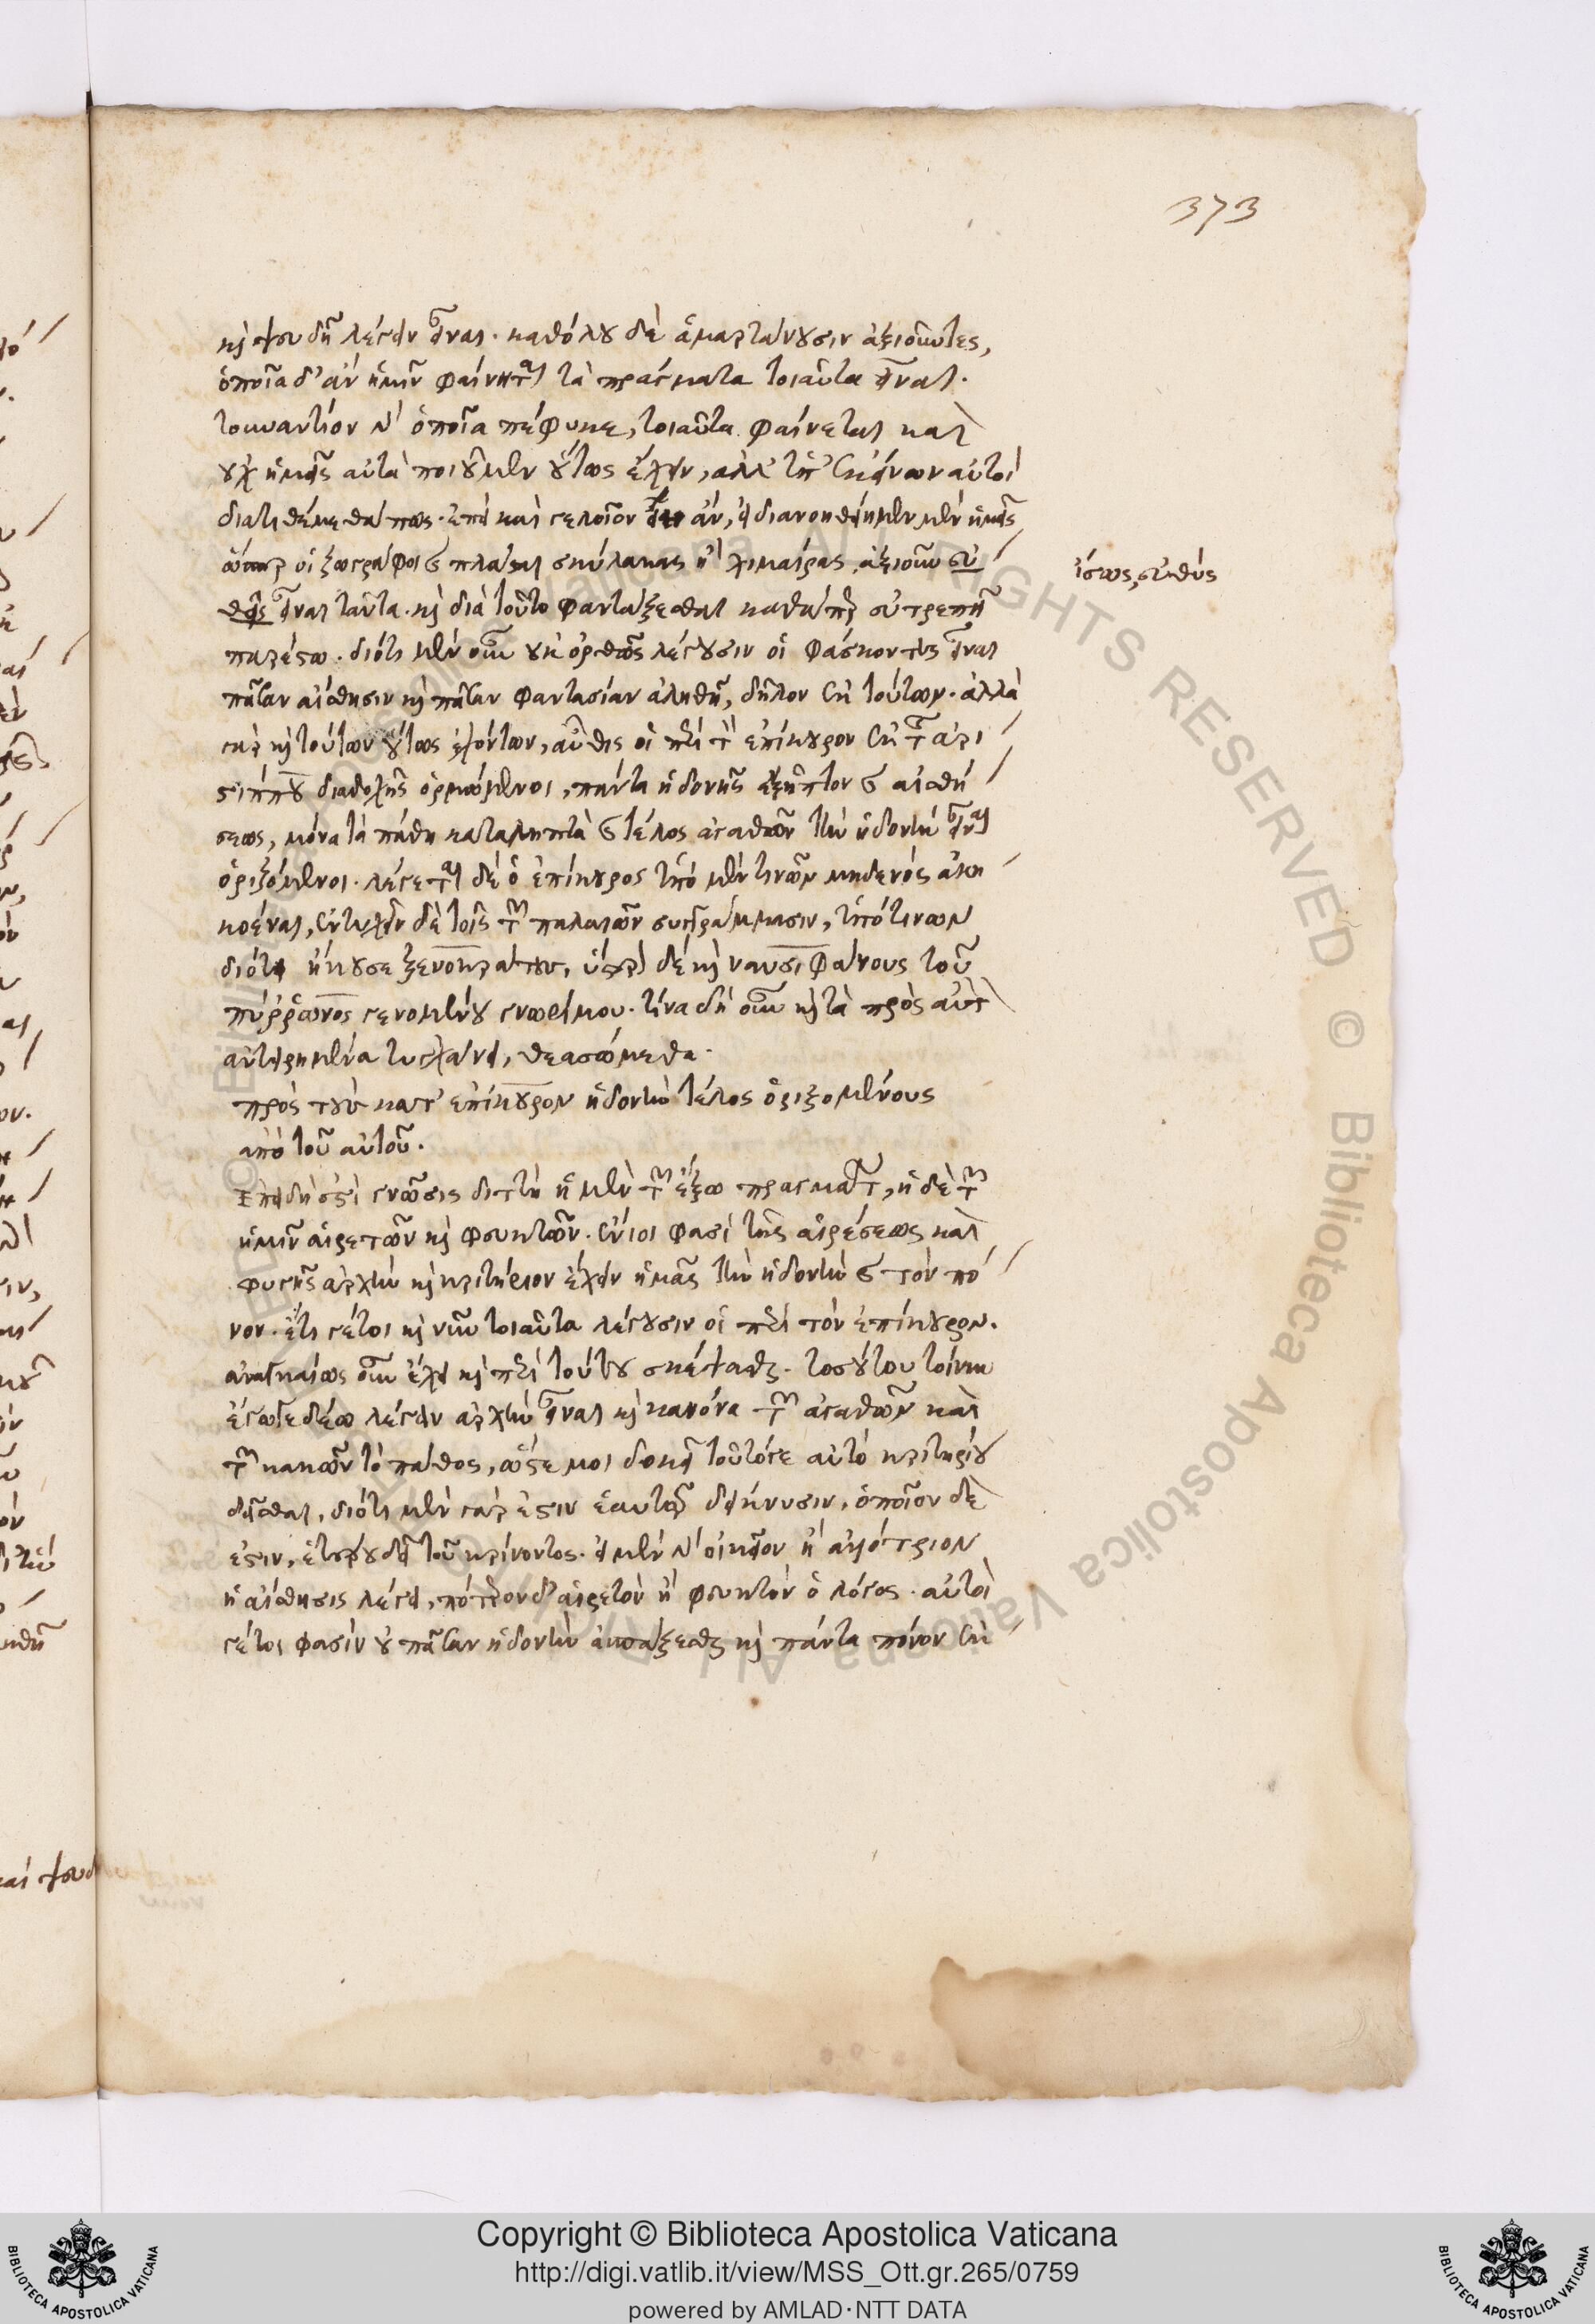 373
καὶ ψευδῆ λέγειν εἶναι. καθόλου δὲ ἁμαρτάνουσιν ἀξιοῦντες,
ὁποῖα δ' ἂν ἡμῖν φαίνηται τὰ πράγματα τοιαῦτα εἶναι.
τοὐναντίον γὰρ ὁποῖα πέφυκε, τοιαῦτα φαίνεται καὶ
οὐχ ἡμεῖς αὐτὰ ποιοῦμεν οὕτως ἔχειν, ἀλλ' ὑπ' ἐκείνων αὐτοὶ
διατιθέμεθά πως. ἐπεὶ καὶ γελοῖον ἂν, εἰ διανοηθείημεν μὲν ἡμεῖς
ὥσπερ οἱ ζωγράφοι καὶ πλάσται σκύλακας ἢ χιμαίρας ἀξιοῦν εὐ
θεῖς εἶναι ταῦτα. καὶ διὰ τοῦτο φαντάζεσθαι καθάπερ εὐτρεπῆ
ἴσως, εὐθύς
παρέστω. διότι μὲν οὖν οὐκ ὀρθῶς λέγουσιν οἱ φάσκοντες εἶναι
πᾶσαν αἴσθησιν καὶ πᾶσαν φαντασίαν ἀληθῆ, δῆλον ἐκ τούτων. ἀλλὰ
γὰρ καὶ τούτων οὕτως ἐχόντων, αὖθις οἱ περὶ τὸν ἐπίκουρον ἐκ τῆς ἀρι
στίππου διαδοχῆς ὁρμώμενοι, πάντα ἡδονῆς ἐξῆπτον καὶ αἰσθή
σεως, μόνα τὰ πάθη καταληπτὰ καὶ τέλος ἀγαθῶν τὴν ἡδονὴν εἶναι
ὁριζόμενοι. λέγεται δὲ ὁ ἐπίκουρος ὑπὸ μὲν τινῶν μηδενὸς ἀκη
κοέναι, ἐντυχεῖν δὲ τοῖς τῶν παλαιῶν συγγράμμασιν, ὑπό τινων
διότι ἤκουσε ξενοκράτους, ὕστερον δὲ καὶ ναυσιφάνους τοῦ
πύρρωνος γενομένου γνωρίμου. τίνα δὴ οὖν καὶ τὰ πρὸς αὐτὸν
ἀντειρημένα τυγχάνει, θεασώμεθα.
πρὸς τοὺς κατ' ἐπίκουρον ἡδονὴν τέλος ὁριζομένους
ἀπὸ τοῦ αὐτοῦ.
Ἐπειδὴ ἐστὶ γνῶσις διττὴ ἡ μὲν τῶν ἔξω πραγμάτων, ἡ δὲ τῶν
ἡμῖν αἱρετῶν καὶ φευκτῶν. ἔνιοι φασὶ τῆς αἱρέσεως καὶ
φυγῆς ἀρχὴν καὶ κριτήριον ἔχειν ἡμᾶς τὴν ἡδονὴν καὶ τὸν πό
νον. ἔτι γέτοι καὶ νῦν τοιαῦτα λέγουσιν οἱ περὶ τὸν ἐπίκουρον.
ἀναγκαίως οὖν ἔχει καὶ περὶ τούτου σκέψασθαι. τοσούτου τοίνυν
ἔγωγε δέω λέγειν ἀρχὴν εἶναι καὶ κανόνα τῶν ἀγαθῶν καὶ
τῶν κακῶν τὸ πάθος, ὥστε μοι δοκεῖ τοῦτόγε αὐτὸ κριτηρίου
δεῖσθαι, διότι μὲν γὰρ ἐστιν ἑαυτὸ δείκνυσιν, ὁποῖον δὲ
ἐστιν, ἑτέρου δεῖ τοῦ κρίνοντος. εἰ μὲν γὰρ οἰκεῖον ἢ ἀλλότριον
ἡ αἴσθησις λέγει, πότερον δ' αἱρετὸν ἢ φευκτὸν ὁ λόγος. αὐτοὶ
γέτοι φασὶν οὐ πᾶσαν ἡδονὴν ἀσπάζεσθαι καὶ πάντα πόνον ἐκ
Copyright © Biblioteca Apostolica Vaticana
http://digi.vatlib.it/view/MSS_Ott.gr.265/0759
powered by AMLAD·NTT DATA